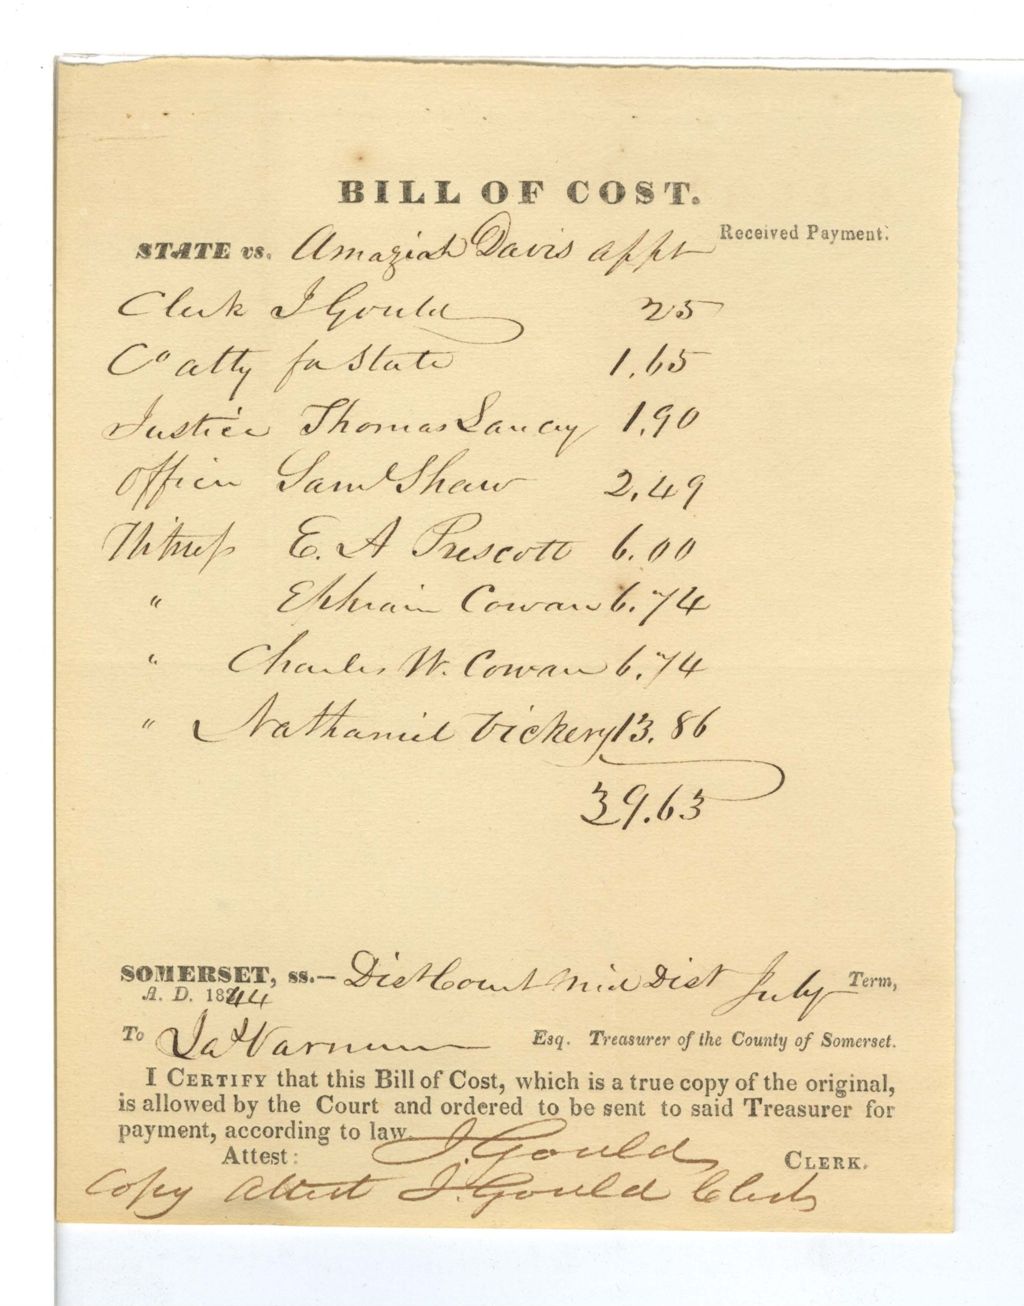 BILL OF COST.
Received Payment.
STATE vs. Amaziah Davis appt
Clerk J Gould 25
Co atty for State 1.65
Justice Thomas Lancy 1.90
Officer Saml Shaw 2.49
Witness E. A Prescott 6.00
" Ephraim Cowan 6.74
" Charles W. Cowan 6.74
" Nathaniel Vickery 13.86
39.63
SOMERSET, ss.— Dist Court Mid Dist July Term,
A. D. 1844
To Ja Varnum Esq. Treasurer of the County of Somerset.
I CERTIFY that this Bill of Cost, which is a true copy of the original,
is allowed by the Court and ordered to be sent to said Treasurer for
payment, according to law.
Attest: J. Gould CLERK.
Copy Attest J. Gould Clerk